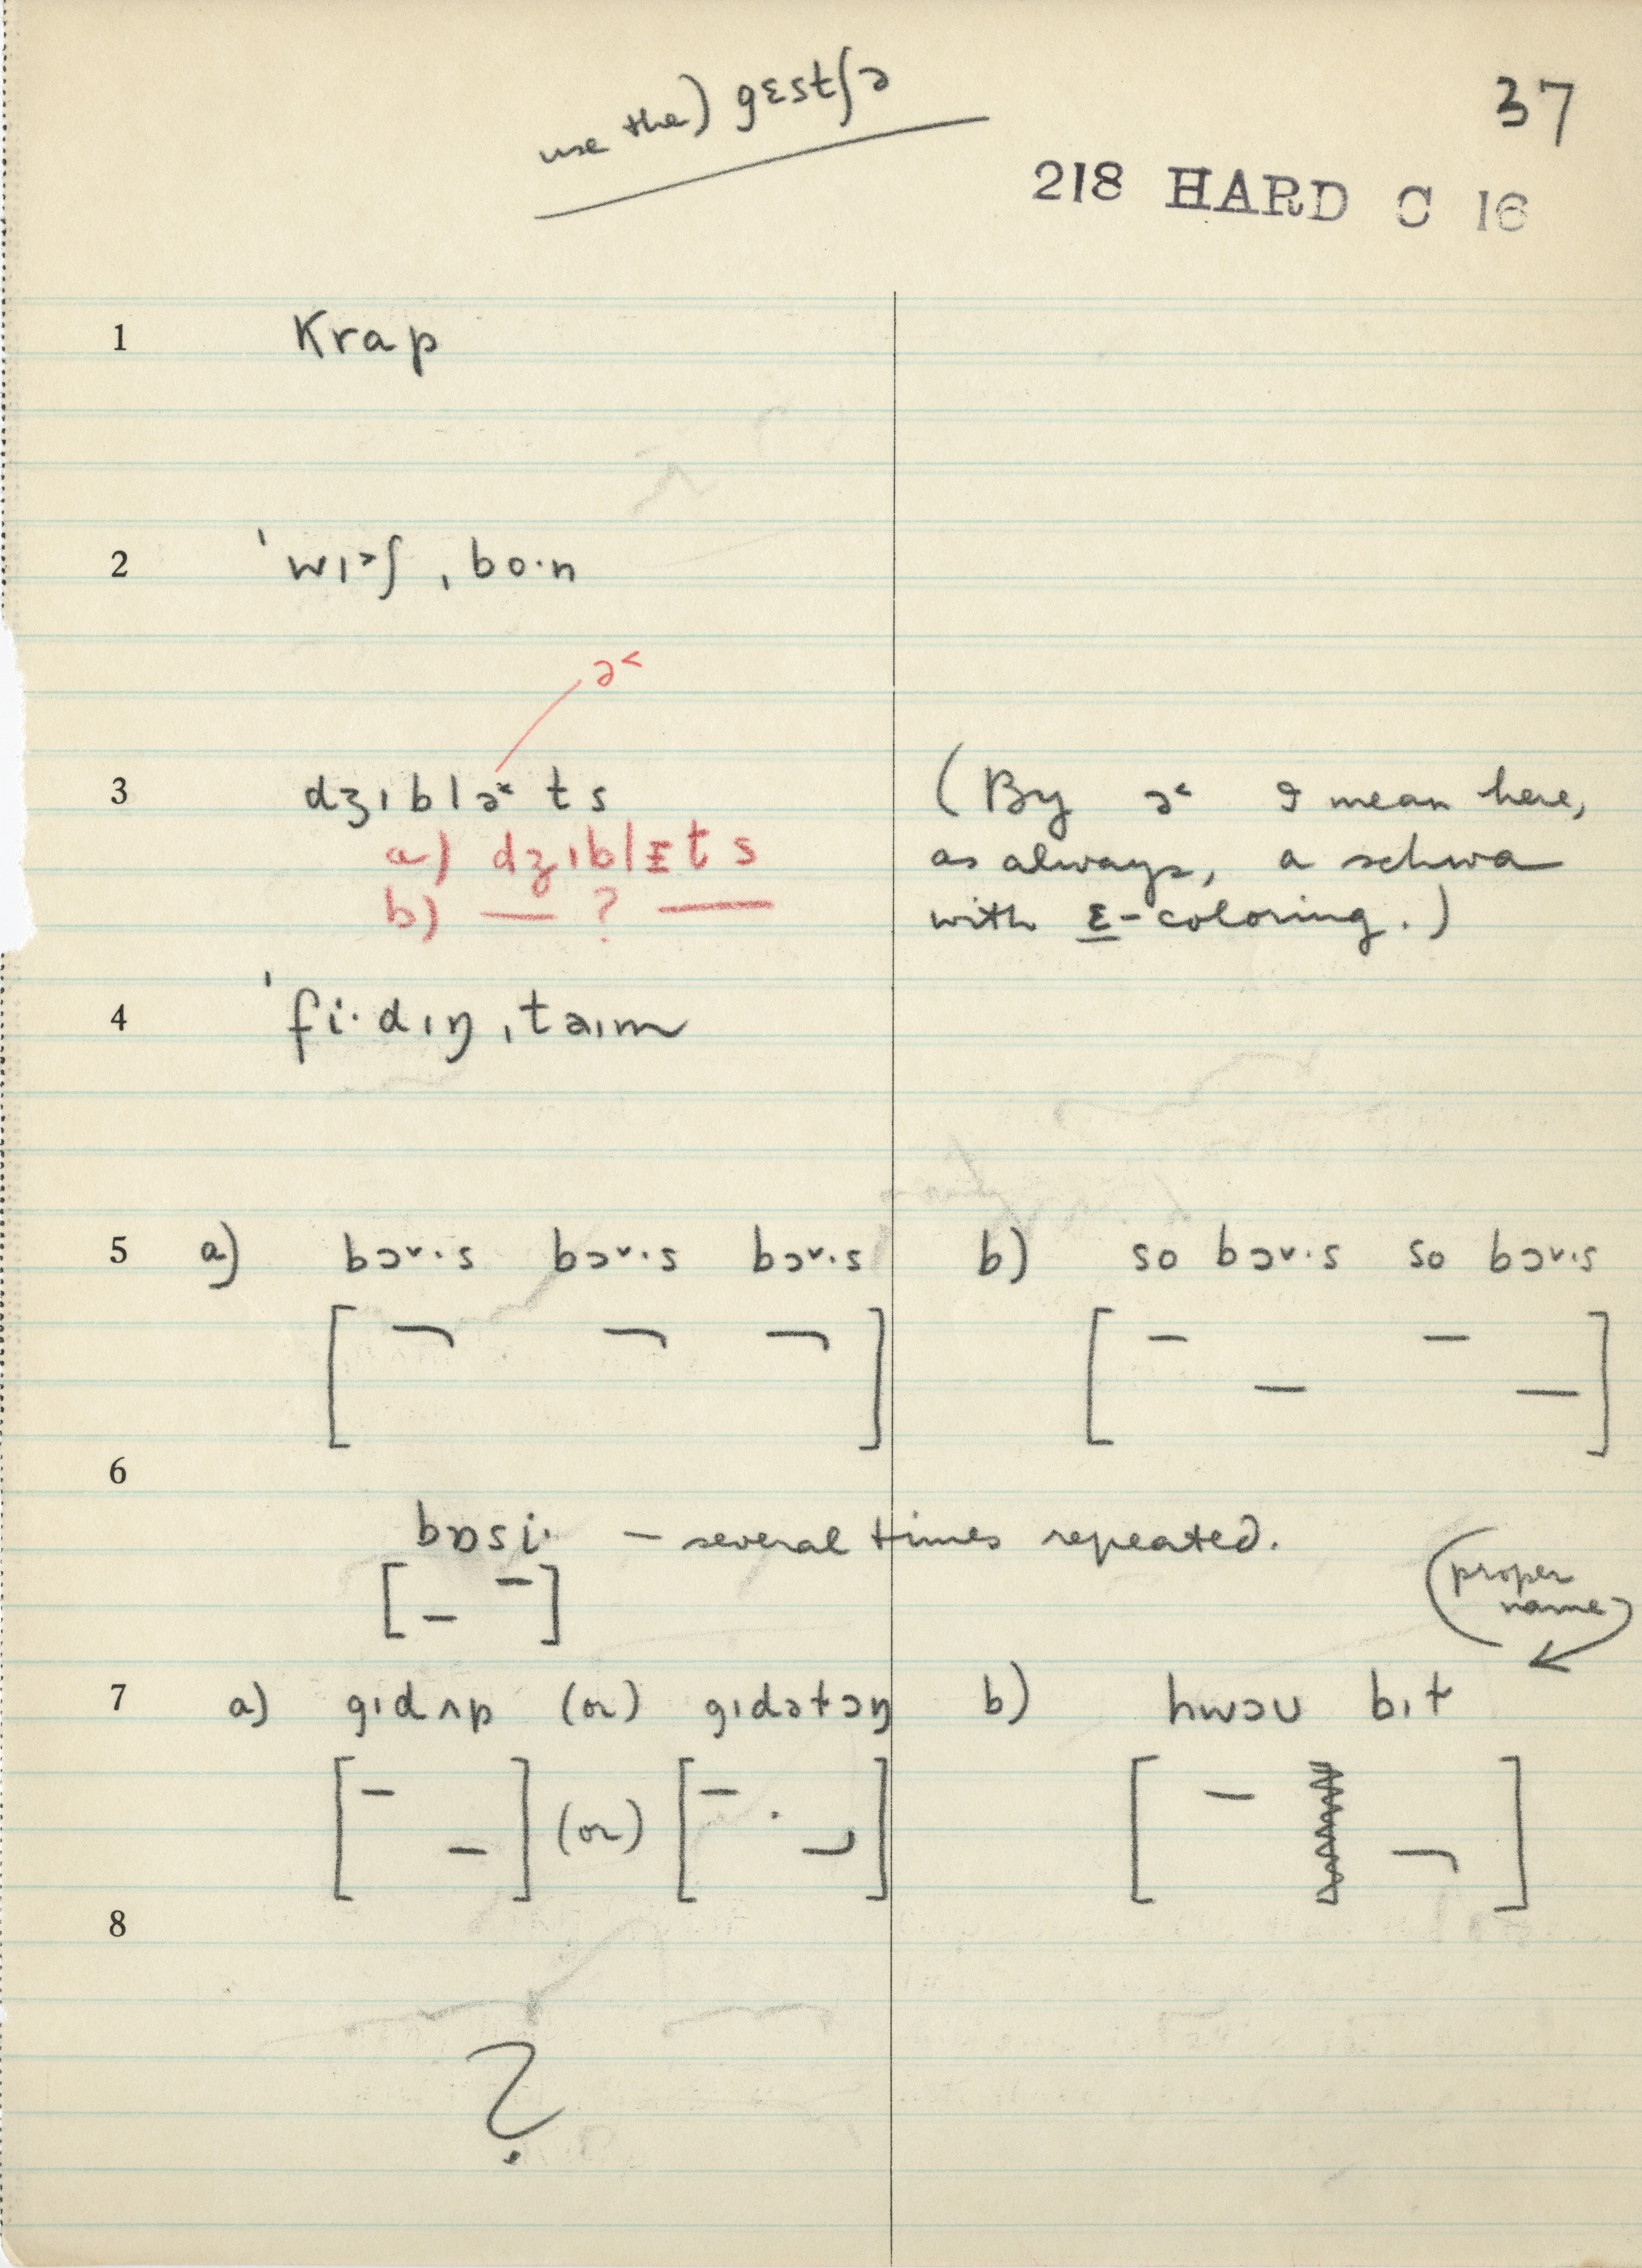 use the) gɛstʃə
37
218 HARD C 16
1 Krap
2 ˈwɪ˃ʃ ˌbo·n
ə˂
3 dʒɪblə˂ts
(By ə˂ I mean here,
a) dʒɪblɛts
as always, a schwa
b) — ? —
with ɛ-coloring.)
4 ˈfi·dɪŋ ˌtaɪm
5 a) bɔ˅·s bɔ˅·s bɔ˅·s b) so bɔ˅·s so bɔ˅·s
6
bɒsi· — several times repeated.
(proper
name)
7 a) gɪdʌp (or) gɪdətɔŋ b) hwɔʊ bɪt
(or)
8
?